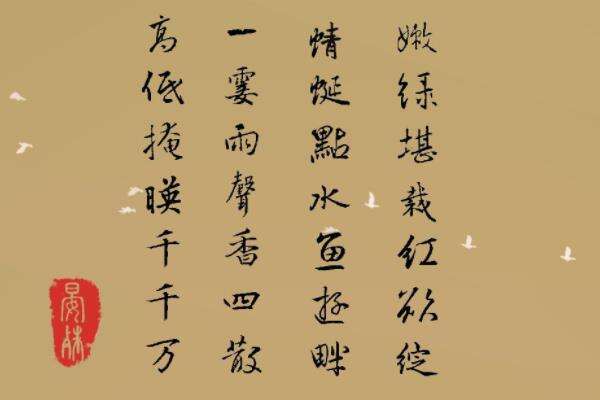 嫩绿堪栽红欲绽
蜻蜓點水鱼遊畔
一霎雨聲香四散
高低掩暎千千万
晏殊